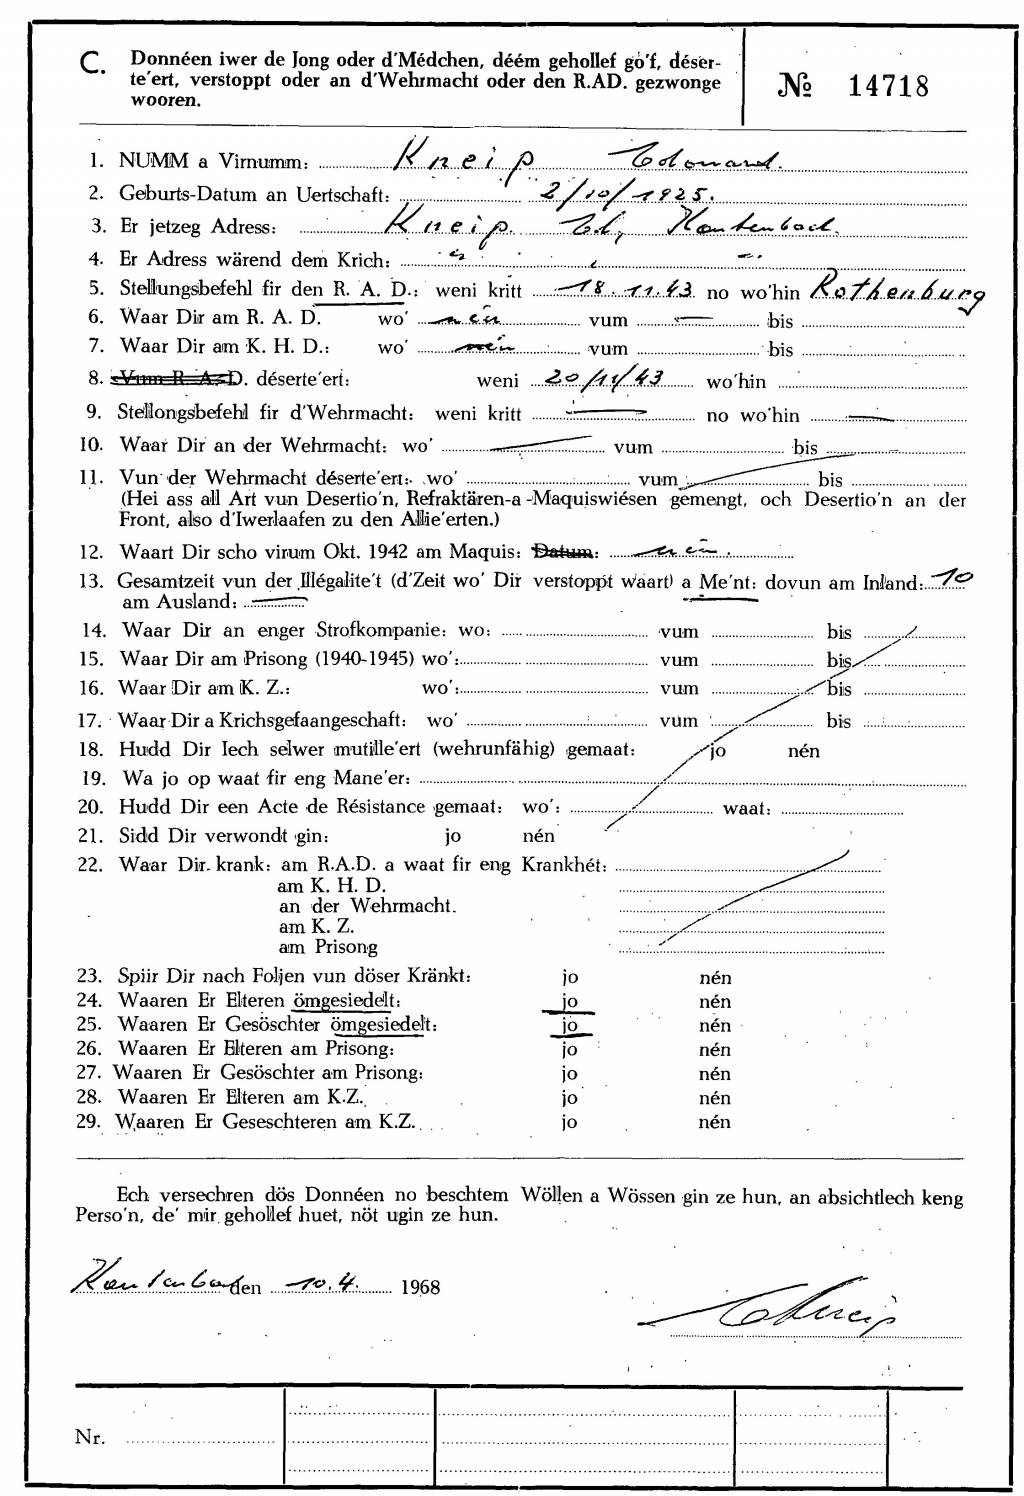 C. Donnéen iwer de Jong oder d'Médchen, déém gehollef go'f, déser-
te'ert, verstoppt oder an d'Wehrmacht oder den R.AD. gezwonge
wooren.
№ 14718
1. NUMM a Virnumm: Kneip Edouard.
2. Geburts-Datum an Uertschaft: 2/10/1925.
3. Er jetzeg Adress: Kneip Ed, Kautenbach.
4. Er Adress wärend dem Krich: " "
5. Stellungsbefehl fir den R. A. D.: weni kritt 18.11.43 no wo'hin Rothenburg
6. Waar Dir am R. A. D. wo' nén vum — bis
7. Waar Dir am K. H. D.: wo' nén vum bis
8. Vum R. A. D. déserte'ert: weni 20/11/43 wo'hin
9. Stellongsbefehl fir d'Wehrmacht: weni kritt — no wo'hin —
10. Waar Dir an der Wehrmacht: wo' vum bis
11. Vun der Wehrmacht déserte'ert: wo' vum bis
(Hei ass all Art vun Desertio'n, Refraktären-a-Maquiswiésen gemengt, och Desertio'n an der
Front, also d'Iwerlaafen zu den Allie'erten.)
12. Waart Dir scho virum Okt. 1942 am Maquis: Datum: nén.
13. Gesamtzeit vun der Illégalite't (d'Zeit wo' Dir verstoppt waart) a Me'nt: dovun am Inland: 10
am Ausland: —
14. Waar Dir an enger Strofkompanie: wo: vum bis
15. Waar Dir am Prisong (1940-1945) wo': vum bis
16. Waar Dir am K. Z.: wo': vum bis
17. Waar Dir a Krichsgefaangeschaft: wo' vum bis
18. Hudd Dir Iech selwer mutille'ert (wehrunfähig) gemaat: jo nén
19. Wa jo op waat fir eng Mane'er:
20. Hudd Dir een Acte de Résistance gemaat: wo': waat:
21. Sidd Dir verwondt gin: jo nén
22. Waar Dir krank: am R.A.D. a waat fir eng Krankhét:
am K. H. D.
an der Wehrmacht.
am K. Z.
am Prisong
23. Spiir Dir nach Foljen vun döser Kränkt: jo nén
24. Waaren Er Elteren ömgesiedelt: jo nén
25. Waaren Er Gesöschter ömgesiedelt: jo nén
26. Waaren Er Elteren am Prisong: jo nén
27. Waaren Er Gesöschter am Prisong: jo nén
28. Waaren Er Elteren am K.Z. jo nén
29. Waaren Er Geseschteren am K.Z. jo nén
Ech versechren dös Donnéen no beschtem Wöllen a Wössen gin ze hun, an absichtlech keng
Perso'n, de' mir gehollef huet, nöt ugin ze hun.
Kautenbach den 10.4. 1968
EdKneip
Nr.